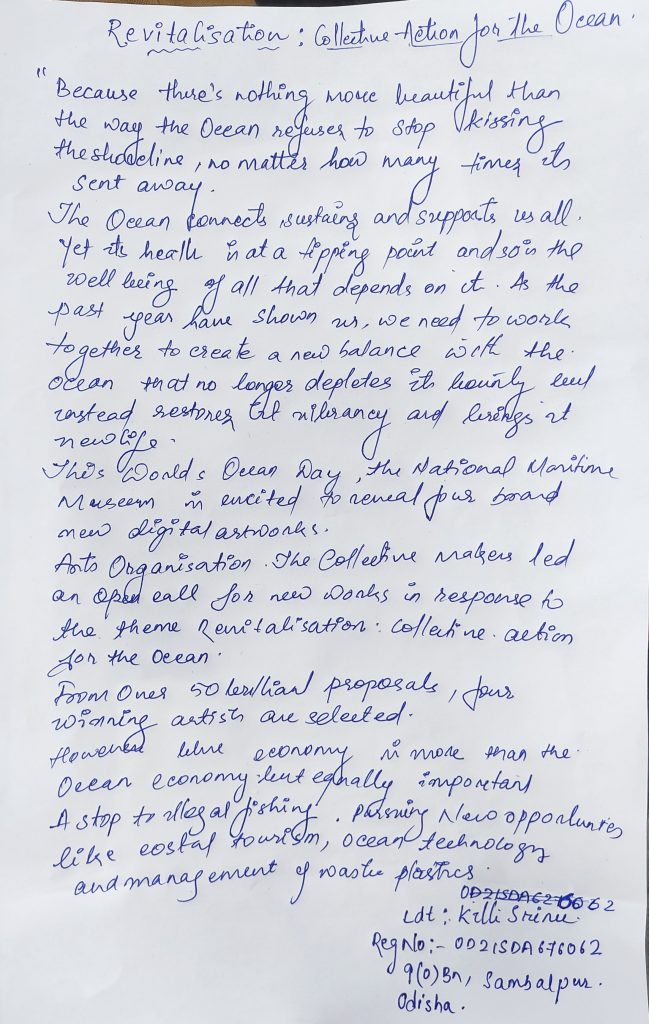 Revitalisation : Collective Action for the Ocean.
" Because there's nothing more beautiful than
the way the Ocean refuses to stop kissing
the shoreline, no matter how many times its
sent away.
The Ocean connects, sustains and supports us all.
Yet its health is at a tipping point and so is the
well being of all that depends on it. As the
past year have shown us, we need to work
together to create a new balance with the
ocean that no longer depletes its bounty but
instead restores its vibrancy and brings it
new life.
This World's Ocean Day, the National Maritime
Museum is excited to reveal four brand
new digital artworks.
Arts Organisation. The Collective Makers led
an open call for new works in response to
the theme Revitalisation: Collective action
for the Ocean.
From Over 50 brilliant proposals, four
winning artists are selected.
However blue economy is more than the
Ocean economy but equally important
A stop to illegal fishing. Pursuing New opportunities
like costal tourism, ocean technology
and management of waste plastics.
Ldt: Killi Srinu.
Reg No:- OD21SDA676062
9(O)Bn, Sambalpur.
Odisha.